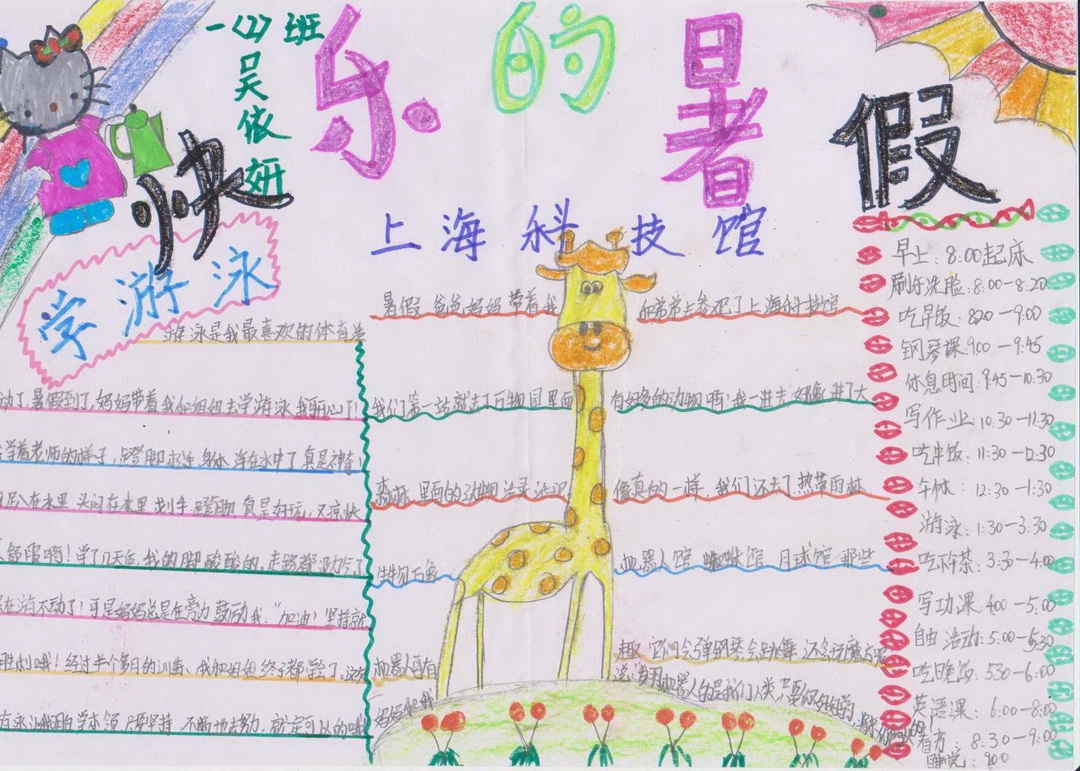 一(2)班
吴依妍
快乐的暑假
学游泳
游泳是我最喜欢的体育运
动了，暑假到了，妈妈带着我和姐姐去学游泳，我开心了！
学着老师的样子，蹬脚
身体浮在水中了，真是神奇！
在水里，头闷在水里，划手，蹬脚，真是好玩，又凉快
舒服啊！学了几天后，我的脚酸酸的，走路都没力气了
在游不动了！可是妈妈总是在旁边鼓动我："加油！坚持就
胜利哦！经过半个多月的训练，我和姐姐终于都学会了，没有
学本领只要坚持，不断地去努力，就一定可以的哦
上海科技馆
暑假，爸爸妈妈带着我和弟弟去参观了上海科技馆
我们第一站就去了动物园里面有好多的动物啊！我一进去好像进了大
森林，里面的动物
像真的一样，我们还去了热带雨林
机器人馆 蜘蛛馆 月球馆 那些
机器人可有趣，它们会弹钢琴会跳舞，还会玩魔方呢
妈妈和我说：发明机器人的是我们人类，只要你好好学
早上：8:00起床
刷牙洗脸：8:00-8:20
吃早饭：8:20-9:00
钢琴课：9:00-9:45
休息时间：9:45-10:30
写作业：10:30-11:30
吃午饭：11:30-12:30
午休：12:30-1:30
游泳：1:30-3:30
吃下午茶：3:30-4:00
写功课：4:00-5:00
自由活动：5:00-5:30
吃晚饭：5:30-6:00
英语课：6:00-8:00
看书：8:30-9:00
睡觉：9:00